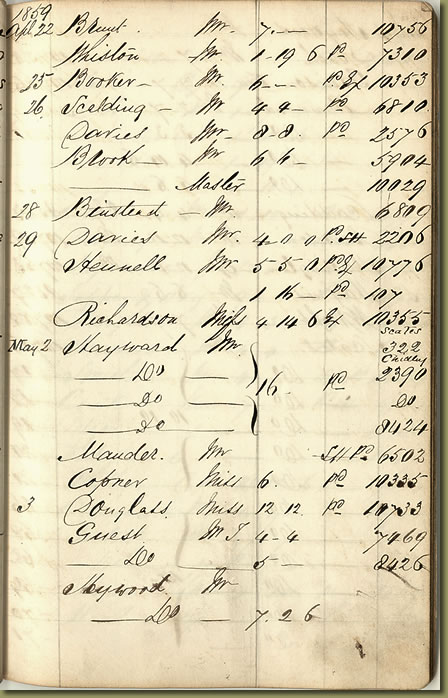 1859
Apl. 22 Brunt Mr. 7. — — 10756
Whiston Mr 1-19 6 Pd 7310
25 Booker — Mr 6 — — Pd 10353
26 Scelding — Mr 4 4 — Pd 6810
Davies Mr 8-8. Pd 2576
Brook — Mr 6 6 — 5904
——— Master 10029
28 Binstead — Mr. 6809
29 Davies Mr. 4 0 0 Pd 2206
Hennell Mr 5 5 0 Pd 10776
1 16 — Pd 107
Richardson Miss 4 14 6 10355
Scates
May 2 Hayward Mr 322
Chidley
——— Do ——— 16. Pd 2390
——— Do ——— Do
——— Do ——— 8424
Mander. Mr Pd 6502
Copner Miss 6. Pd 10335
3 Douglass Miss 12 12. Pd 10733
Guest M 4-4 7469
——— Do ——— 5 — 8426
Heywood Mr
——— Do — 7. 2 6